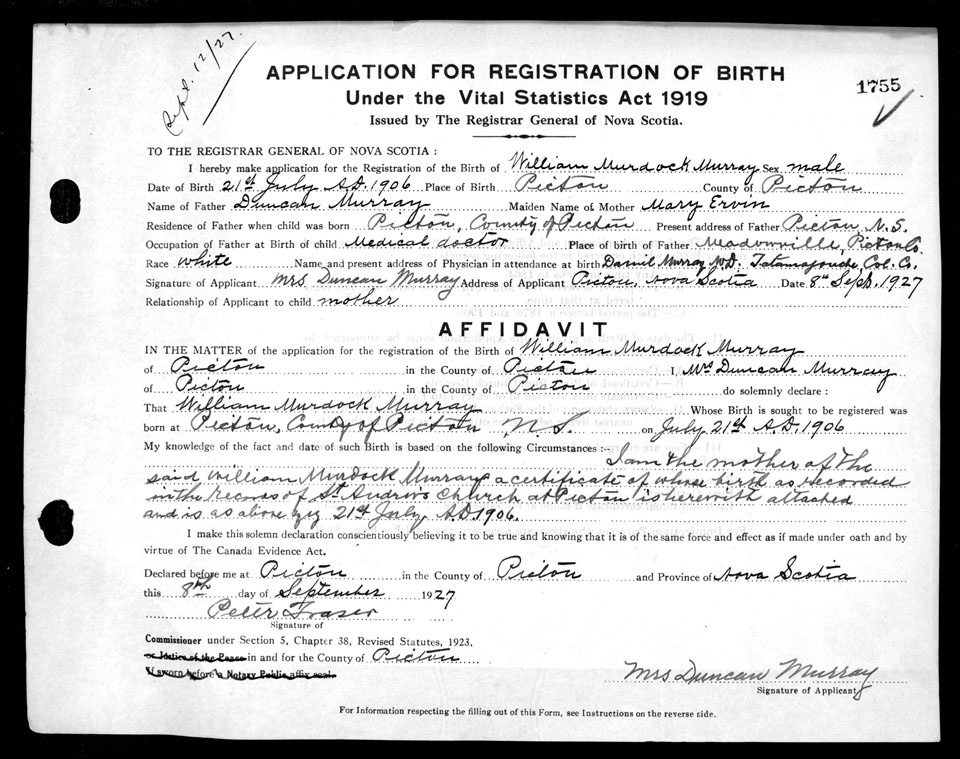 Sept. 12/27.
APPLICATION FOR REGISTRATION OF BIRTH
Under the Vital Statistics Act 1919
1755
Issued by The Registrar General of Nova Scotia.
TO THE REGISTRAR GENERAL OF NOVA SCOTIA :
I hereby make application for the Registration of the Birth of William Murdock Murray Sex male
Date of Birth 21st July A.D. 1906 Place of Birth Pictou County of Pictou
Name of Father Duncan Murray Maiden Name of Mother Mary Ervin
Residence of Father when child was born Pictou, County of Pictou Present address of Father Pictou, N.S.
Occupation of Father at Birth of child Medical doctor Place of birth of Father Meadowville, Pictou Co.
Race white Name and present address of Physician in attendance at birth Daniel Murray M.D. Tatamagouche, Col. Co.
Signature of Applicant Mrs Duncan Murray Address of Applicant Pictou, Nova Scotia Date 8th Sept. 1927
Relationship of Applicant to child mother
AFFIDAVIT
IN THE MATTER of the application for the registration of the Birth of William Murdock Murray
of Pictou in the County of Pictou I, Mrs Duncan Murray
of Pictou in the County of Pictou do solemnly declare :
That William Murdock Murray Whose Birth is sought to be registered was
born at Pictou, County of Pictou N.S. on July 21st A.D. 1906
My knowledge of the fact and date of such Birth is based on the following Circumstances : I am the mother of the
said William Murdock Murray a certificate of whose birth as recorded
in the Records of St Andrew's Church at Pictou is herewith attached
and is as above 21st July A.D. 1906.
I make this solemn declaration conscientiously believing it to be true and knowing that it is of the same force and effect as if made under oath and by
virtue of The Canada Evidence Act.
Declared before me at Pictou in the County of Pictou and Province of Nova Scotia
this 8th day of September 1927
Peter Fraser
Signature of
Commissioner under Section 5, Chapter 38, Revised Statutes, 1923,
or Justice of the Peace in and for the County of Pictou
If sworn before a Notary Public affix seal.
Mrs Duncan Murray
Signature of Applicant
For Information respecting the filling out of this Form, see Instructions on the reverse side.